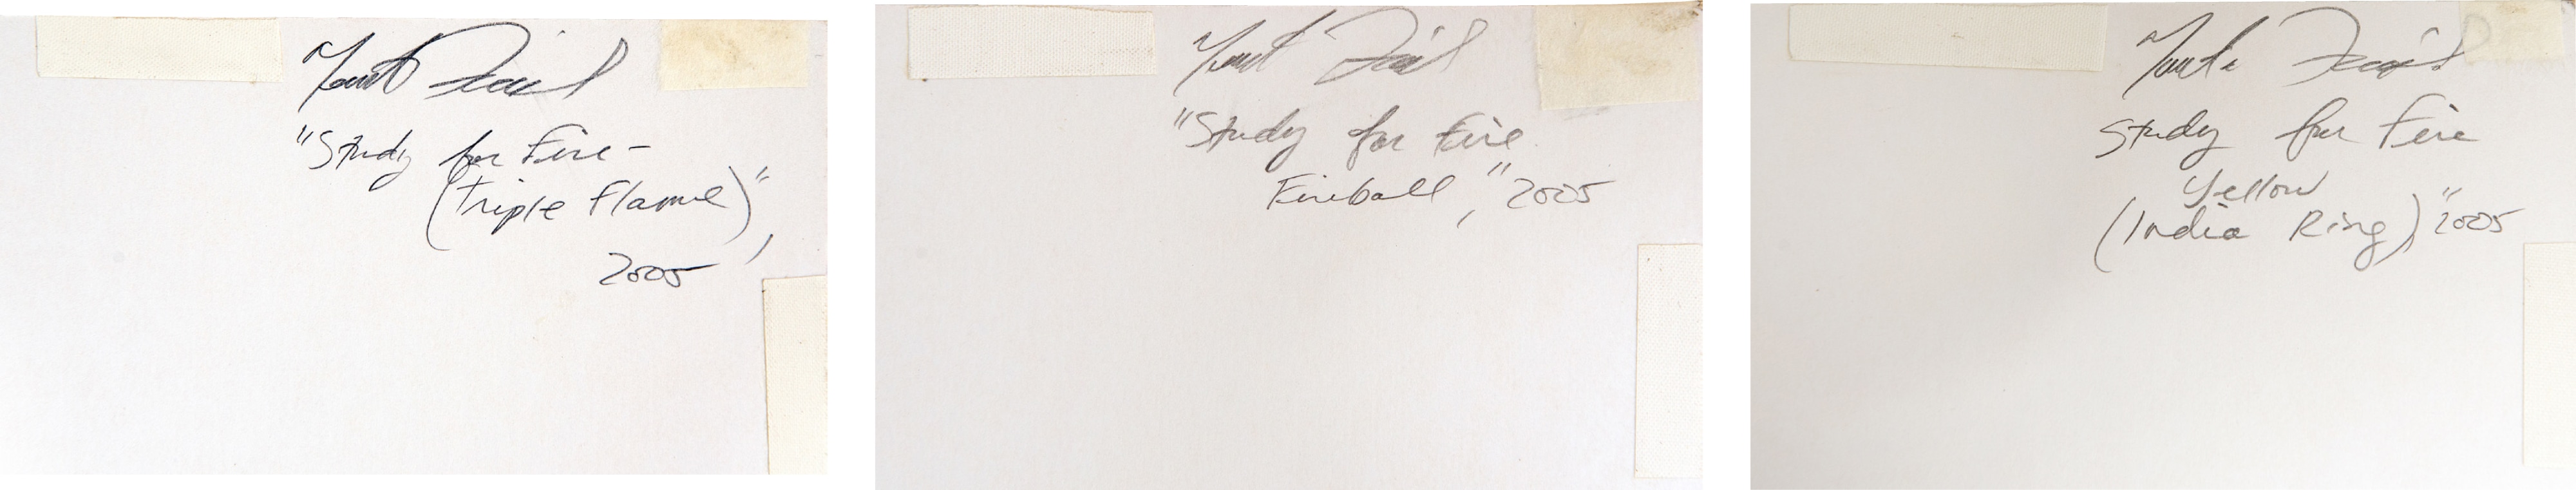 "Study for Fire-
(Triple Flame)",
2005
"Study for Fire
Fireball," 2005
Study for Fire
Yellow
(India Ring)," 2005